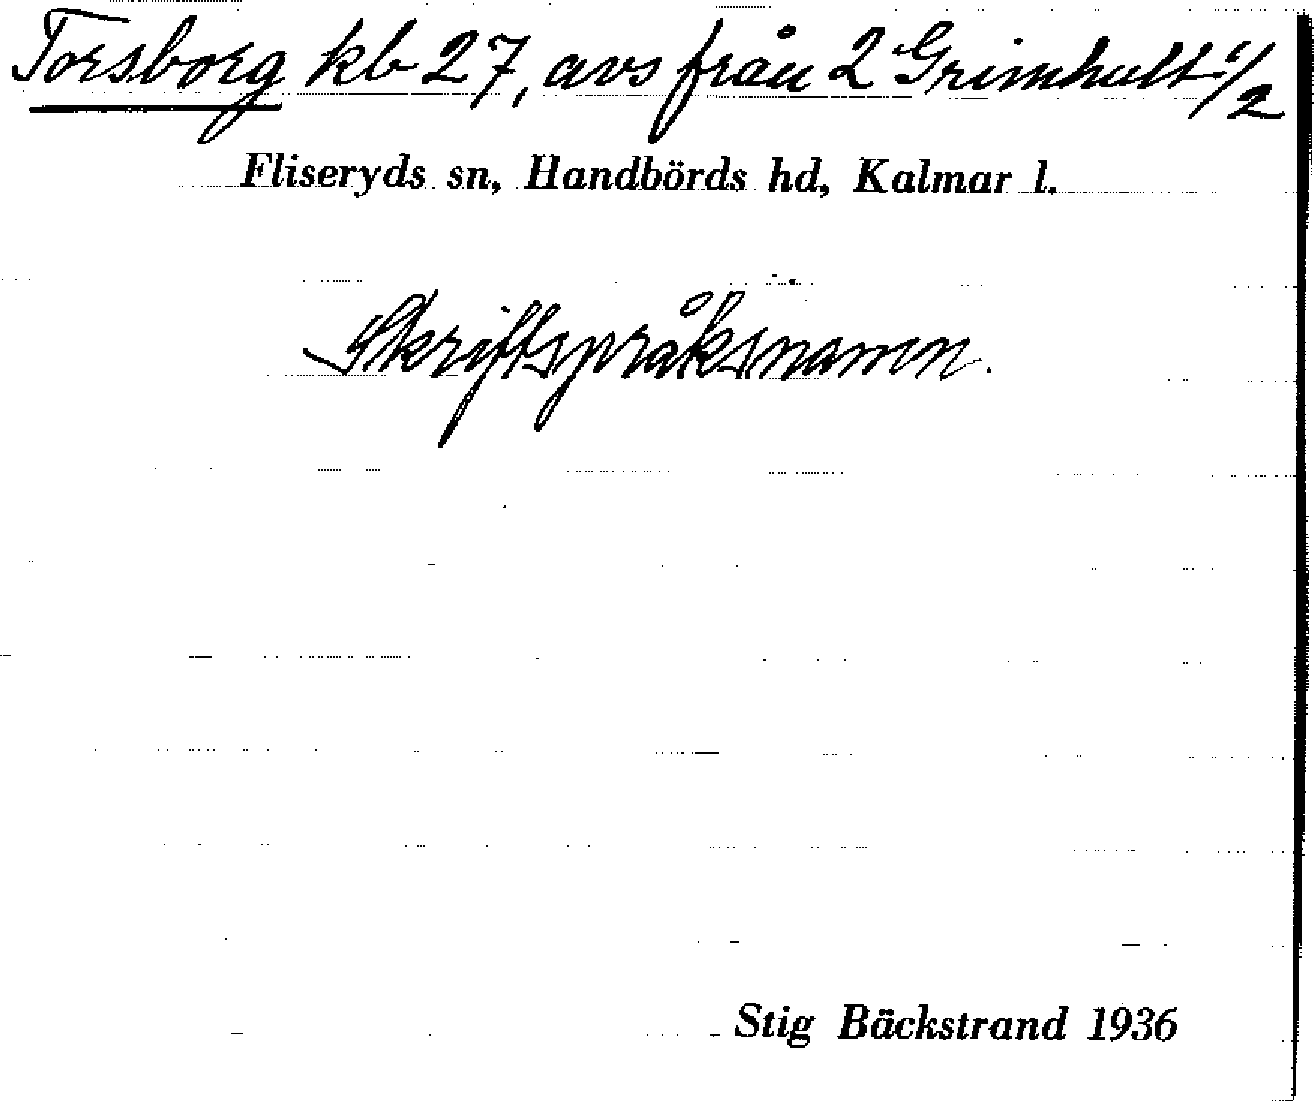 Torsborg kb 27, avs från 2 Grimhult 1/2
Fliseryds sn, Handbörds hd, Kalmar l.
Skriftspråksnamn.
Stig Bäckstrand 1936